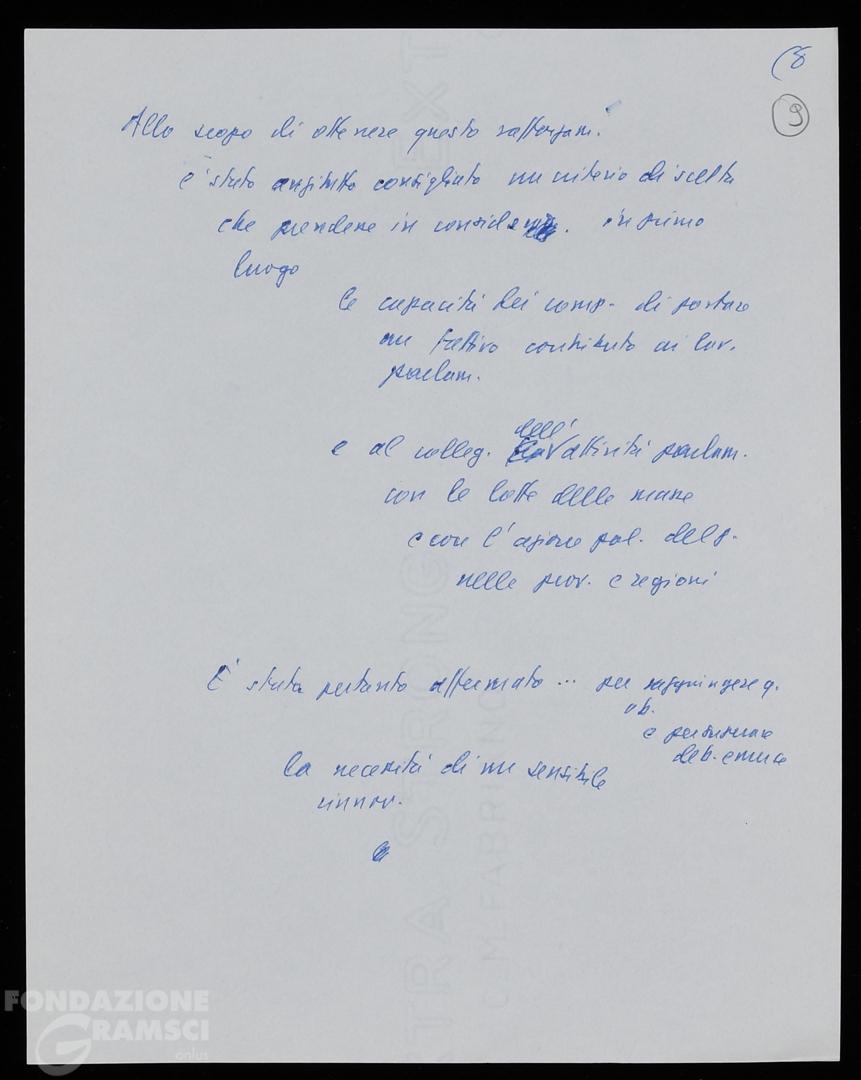 (8
9
Allo scopo di ottenere questo rafforzam.
è stato anzitutto consigliato un criterio di scelta
che prendesse in consideraz. in primo
luogo
le capacità dei comp. di portare
un fattivo contributo ai lav.
parlam.
e al colleg. dell'attività parlam.
con le lotte delle masse
e con l'azione pol. del p.
nelle prov. e regioni
È stata pertanto affermata ... per raggiungere q.
ob.
e per superare
deb. e
la necessità di un sensibile
rinnov.
EXTRA STRONG
FABRIANO
FONDAZIONE
GRAMSCI
onlus